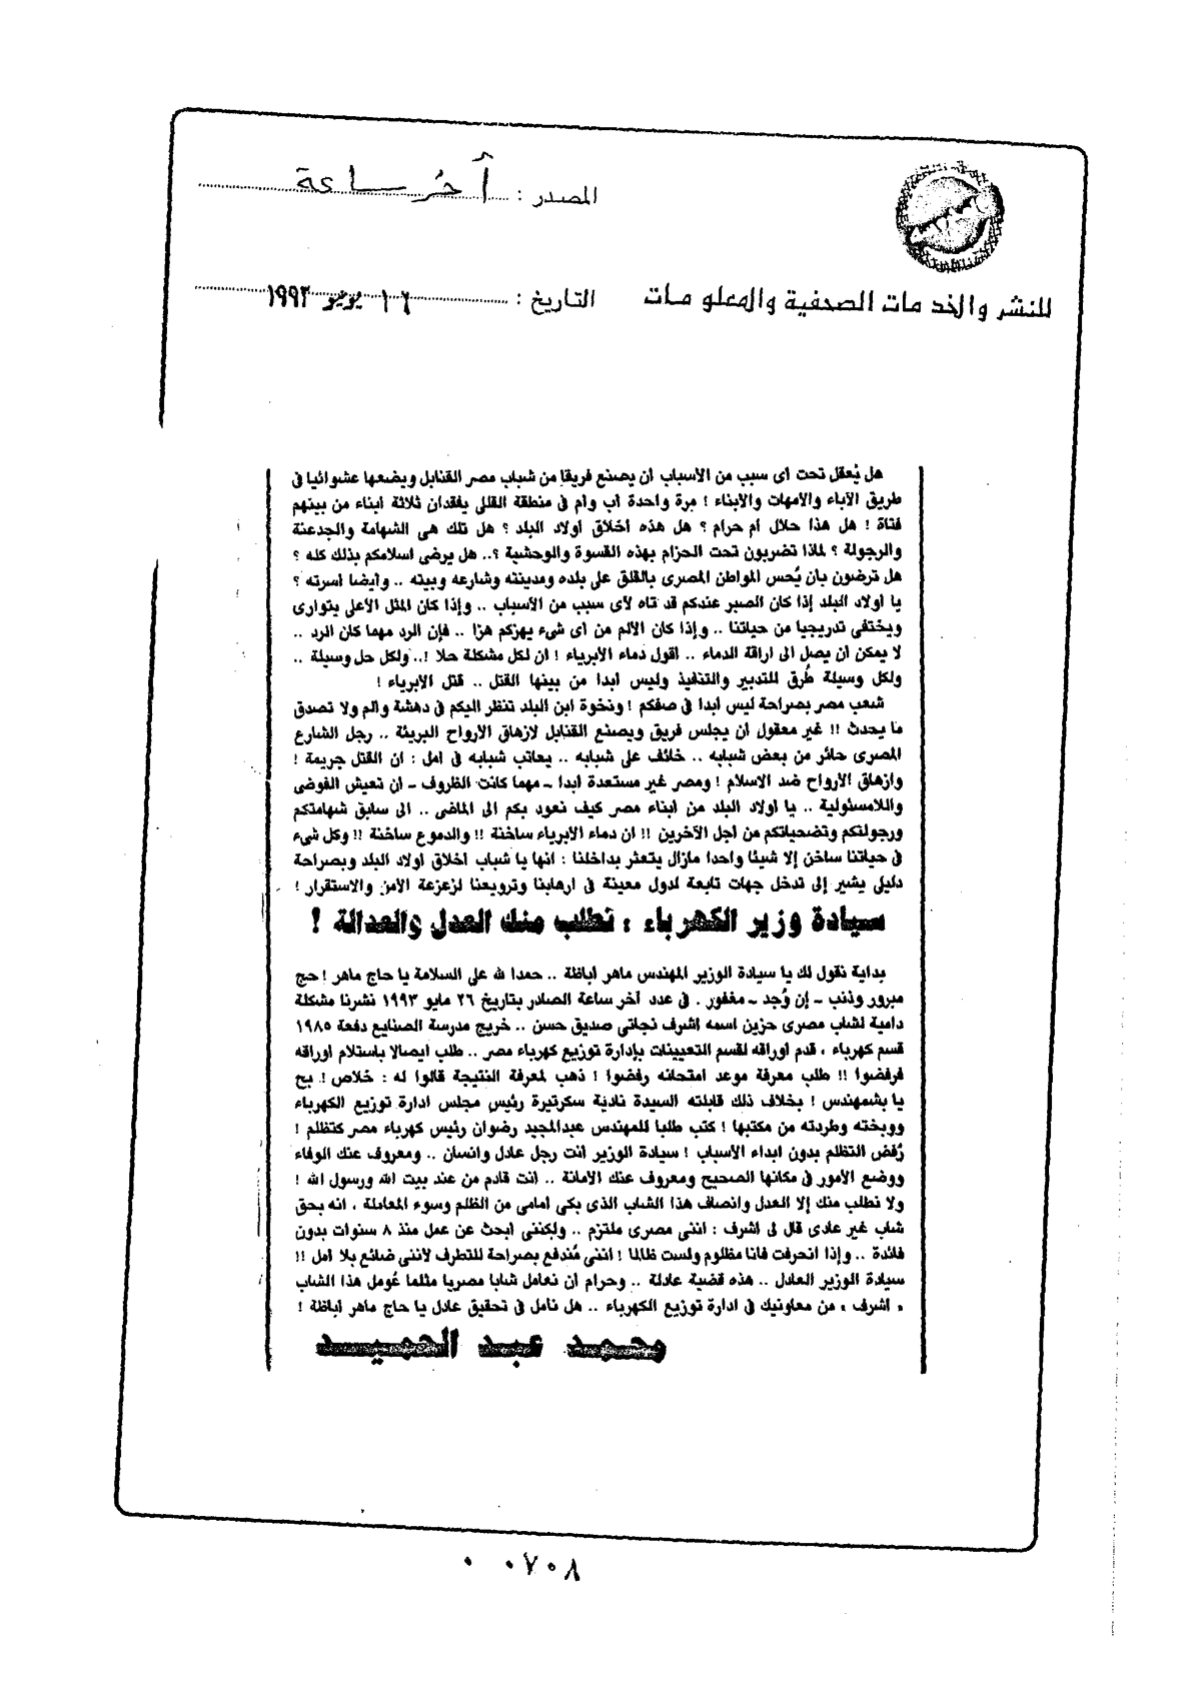 المصدر : أخر ساعة
للنشر والخدمات الصحفية والمعلومات
التاريخ : ١٦ يونيو ١٩٩٣
هل يُعقل تحت اى سبب من الأسباب ان يصنع فريقا من شباب مصر القنابل ويضعها عشوائيا فى
طريق الآباء والامهات والابناء ! مرة واحدة أب وام فى منطقة القللى يفقدان ثلاثة ابناء من بينهم
فتاة ! هل هذا حلال أم حرام ؟ هل هذه أخلاق اولاد البلد ؟ هل تلك هى الشهامة والجدعنة
والرجولة ؟ لماذا تضربون تحت الحزام بهذه القسوة والوحشية ؟.. هل يرضى اسلامكم بذلك كله ؟
هل ترضون بان يُحس المواطن المصرى بالقلق على بلده ومدينته وشارعه وبيته .. وايضا اسرته ؟
يا اولاد البلد إذا كان الصبر عندكم قد تاه لأى سبب من الأسباب .. وإذا كان المثل الأعلى يتوارى
ويختفى تدريجيا من حياتنا .. وإذا كان الألم من اى شىء يهزكم هزا .. فإن الرد مهما كان الرد ..
لا يمكن ان يصل الى اراقة الدماء .. اقول دماء الأبرياء ! ان لكل مشكلة حلا !.. ولكل حل وسيلة ..
ولكل وسيلة طُرق للتدبير والتنفيذ وليس ابدا من بينها القتل .. قتل الابرياء !
شعب مصر بصراحة ليس ابدا فى صفكم ! ونخوة ابن البلد تنظر اليكم فى دهشة والم ولا تصدق
ما يحدث !! غير معقول ان يجلس فريق ويصنع القنابل لازهاق الأرواح البريئة .. رجل الشارع
المصرى حائر من بعض شبابه .. خائف على شبابه .. يعاتب شبابه فى امل : ان القتل جريمة !
وازهاق الأرواح ضد الاسلام ! ومصر غير مستعدة ابدا - مهما كانت الظروف - ان تعيش الفوضى
واللامسئولية .. يا اولاد البلد من ابناء مصر كيف نعود بكم الى الماضى .. الى سابق شهامتكم
ورجولتكم وتضحياتكم من اجل الآخرين !! ان دماء الابرياء ساخنة !! والدموع ساخنة !! وكل شىء
فى حياتنا ساخن إلا شيئا واحدا مازال يتعثر بداخلنا : انها يا شباب اخلاق اولاد البلد وبصراحة
دليلى يشير إلى تدخل جهات تابعة لدول معينة فى ارهابنا وترويعنا لزعزعة الأمن والاستقرار !
سيادة وزير الكهرباء : نطلب منك العدل والعدالة !
بداية نقول لك يا سيادة الوزير المهندس ماهر اباظة .. حمدا لله على السلامة يا حاج ماهر ! حج
مبرور وذنب - إن وُجد - مغفور . فى عدد آخر ساعة الصادر بتاريخ ٢٦ مايو ١٩٩٣ نشرنا مشكلة
دامية لشاب مصرى حزين اسمه اشرف نجاتى صديق حسن .. خريج مدرسة الصنايع دفعة ١٩٨٥
قسم كهرباء ، قدم اوراقه لقسم التعيينات بإدارة توزيع كهرباء مصر .. طلب ايصالا باستلام اوراقه
فرفضوا !! طلب معرفة موعد امتحانه رفضوا ! ذهب لمعرفة النتيجة قالوا له : خلاص ! بح
يا بشمهندس ! بخلاف ذلك قابلته السيدة نادية سكرتيرة رئيس مجلس ادارة توزيع الكهرباء
ووبخته وطردته من مكتبها ! كتب طلبا للمهندس عبدالمجيد رضوان رئيس كهرباء مصر كتظلم !
رُفض التظلم بدون ابداء الأسباب ! سيادة الوزير انت رجل عادل وانسان .. ومعروف عنك الوفاء
ووضع الأمور فى مكانها الصحيح ومعروف عنك الأمانة .. انت قادم من عند بيت الله ورسول الله !
ولا نطلب منك إلا العدل وانصاف هذا الشاب الذى بكى امامى من الظلم وسوء المعاملة ، انه بحق
شاب غير عادى قال لى اشرف : اننى مصرى ملتزم .. ولكننى ابحث عن عمل منذ ٨ سنوات بدون
فائدة .. وإذا انحرفت فانا مظلوم ولست ظالما ! اننى مُندفع بصراحة للتطرف لأننى ضائع بلا امل !!
سيادة الوزير العادل .. هذه قضية عادلة .. وحرام ان نعامل شابا مصريا مثلما عُومل هذا الشاب
« اشرف » من معاونيك فى ادارة توزيع الكهرباء .. هل نامل فى تحقيق عادل يا حاج ماهر اباظة !
محمد عبد الحميد
٠٠٧٠٨